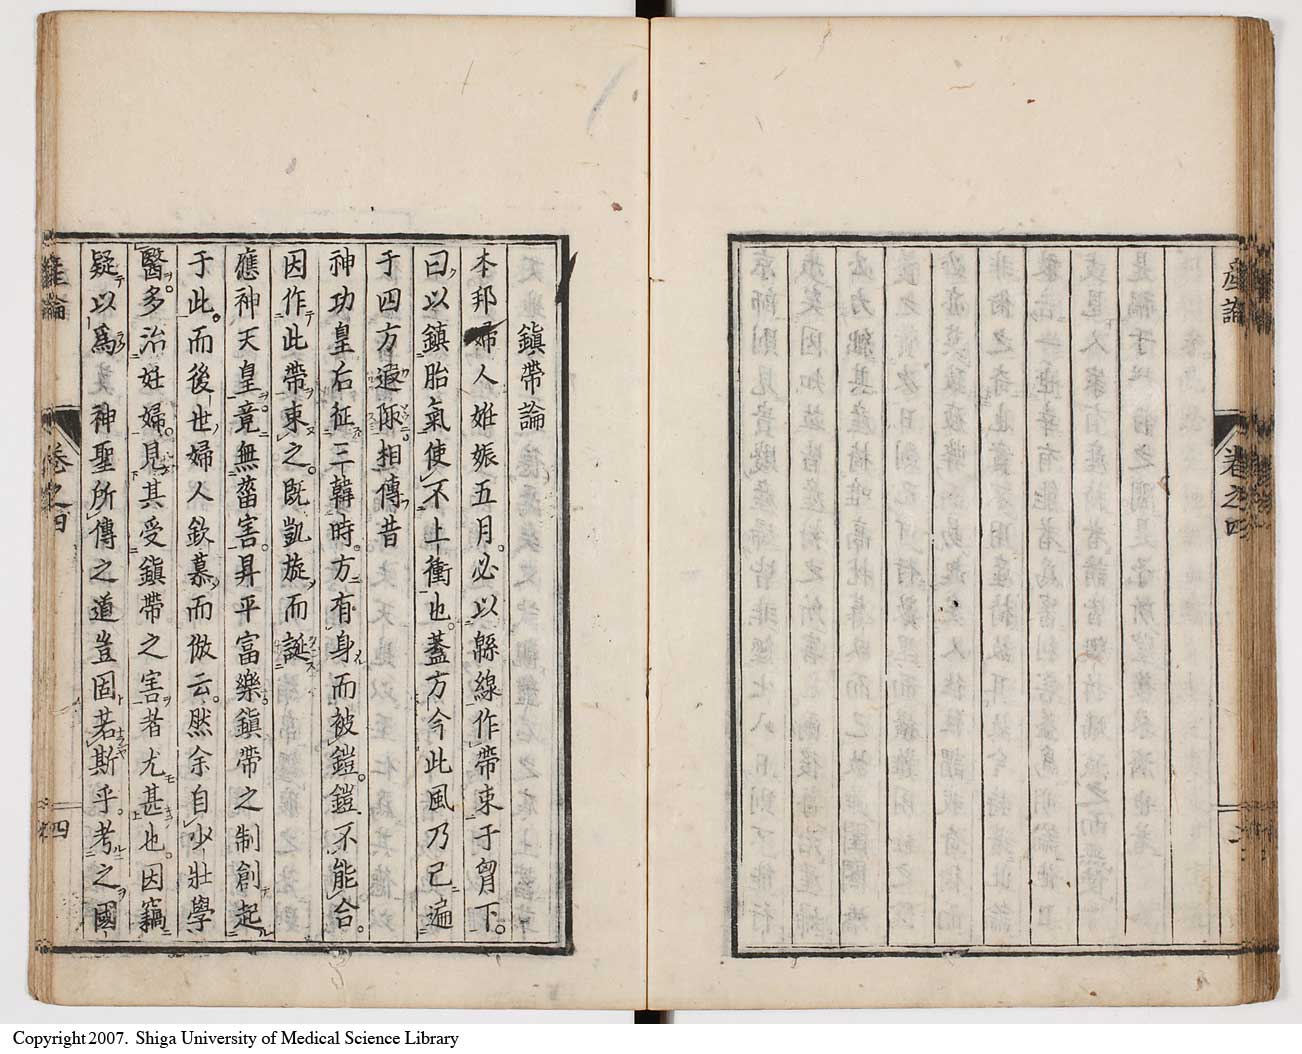 産論
卷之四
二
鎮帶論
本邦婦人姙娠五月必以緜線作帶束于胷下
曰以鎮胎氣使不上衝也蓋方今此風乃已遍
于四方遐陬相傳昔
神功皇后征三韓時方有身而被鎧鎧不能合
因作此帶束之既凱旋而誕
應神天皇竟無菑害昇平富樂鎮帶之制創起
于此而後世婦人欽慕而倣云然余自少壯學
醫多治妊婦見其受鎮帶之害者尤甚也因竊
疑以爲神聖所傳之道豈固若斯乎考之國
産論
卷之四
四
Copyright 2007. Shiga University of Medical Science Library